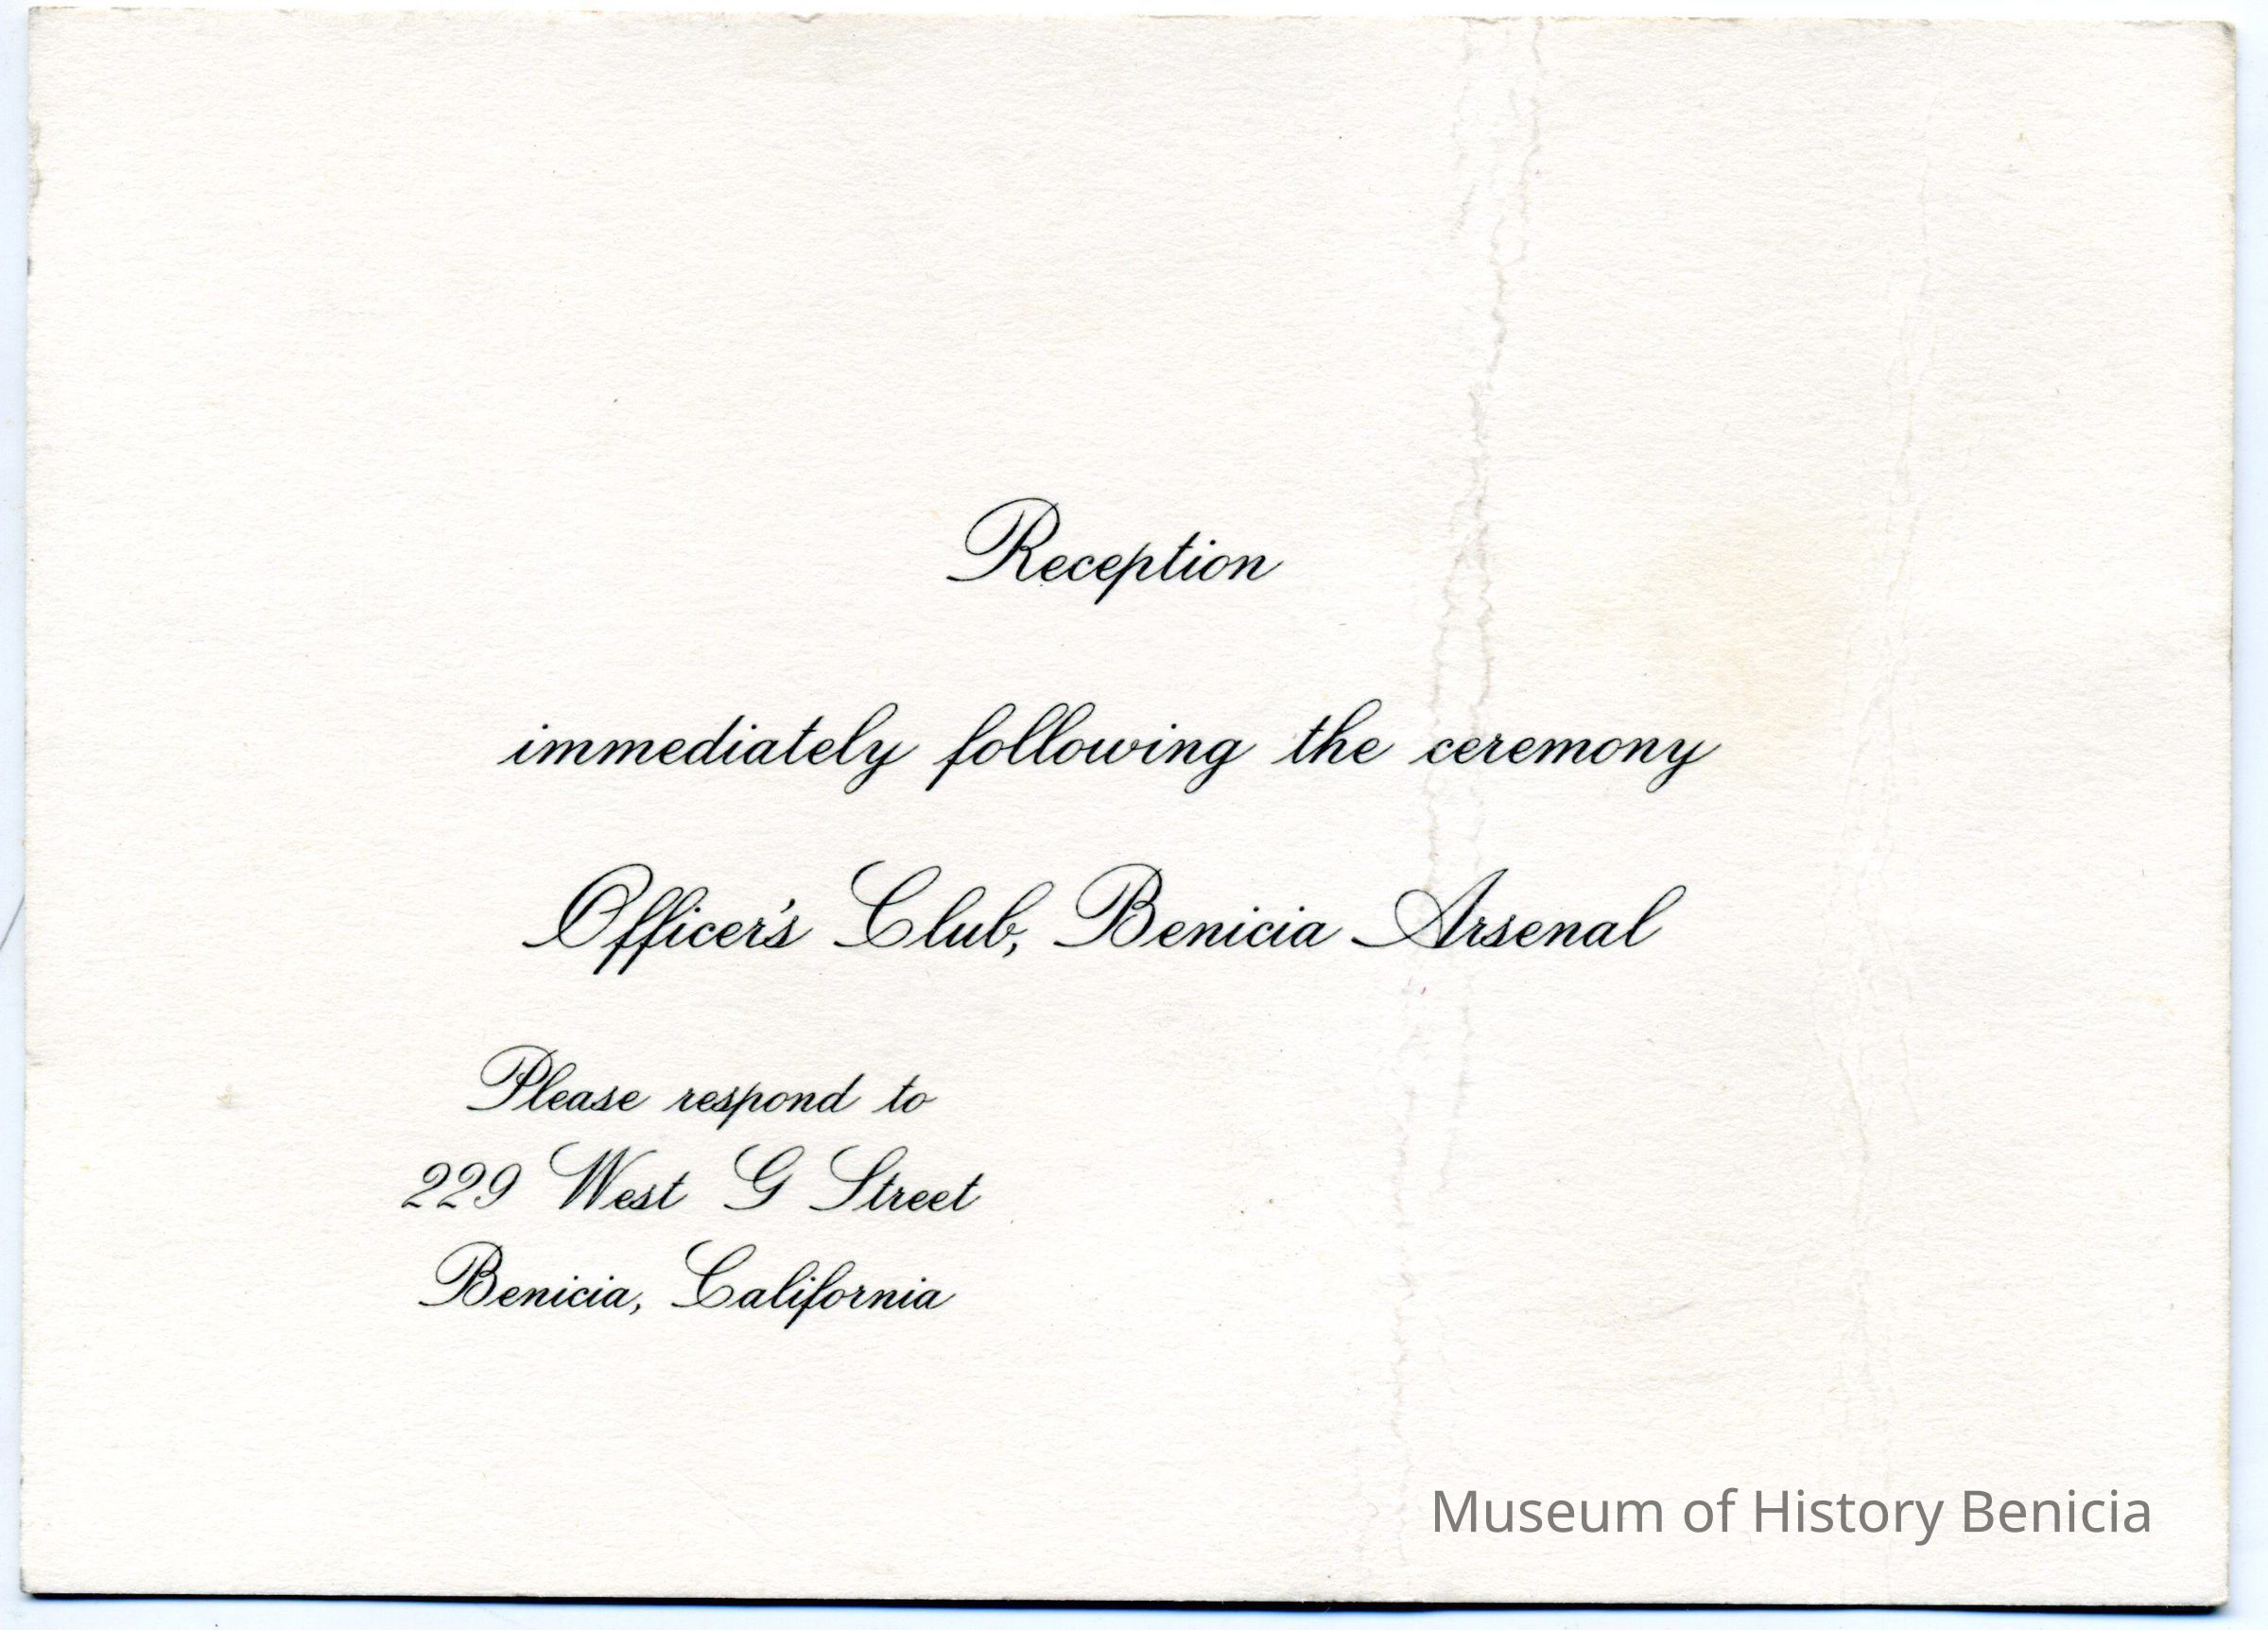 Reception
immediately following the ceremony
Officer's Club, Benicia Arsenal
Please respond to
229 West G Street
Benicia, California
Museum of History Benicia